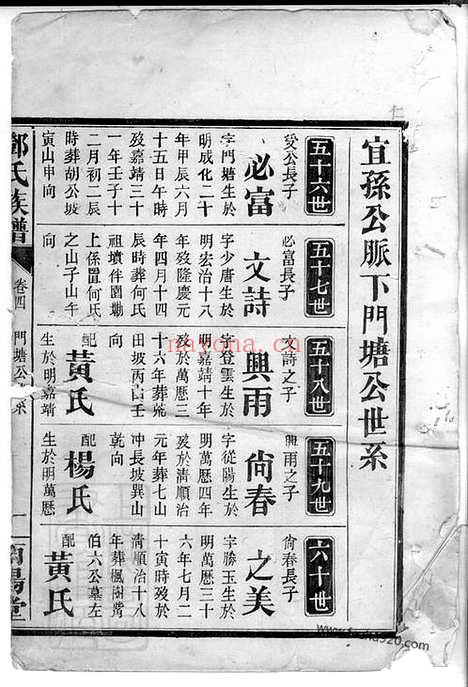 宜孫公脈下門塘公世系
五十六世
受公長子
必富
字門塘生於
明成化二十
年甲辰六月
十五日午時
歿嘉靖三十
一年壬子十
二月初二辰
時葬胡公坡
寅山申向
五十七世
必富長子
文詩
字少唐生於
明宏治十八
年歿隆慶元
年四月十四
辰時葬何氏
祖墳伴園塘
上係置何氏
之山子山午
向
五十八世
文詩之子
興雨
字登雲生於
明嘉靖十年
歿於萬曆三
十六年葬
田坡丙山壬
向
配
黃氏
生於明嘉靖
五十九世
興雨之子
尙春
字從陽生於
明萬曆四年
歿於清順治
元年葬七山
冲長坡巽山
乾向
配
楊氏
生於明萬曆
六十世
尙春長子
之美
字勝玉生於
明萬曆三十
六年七月二
十寅時歿於
清順治十八
年葬楓樹
伯六公墓左
配
黃氏
鄭氏族譜
卷四
門塘公 系
一
陽堂
nayona.cn